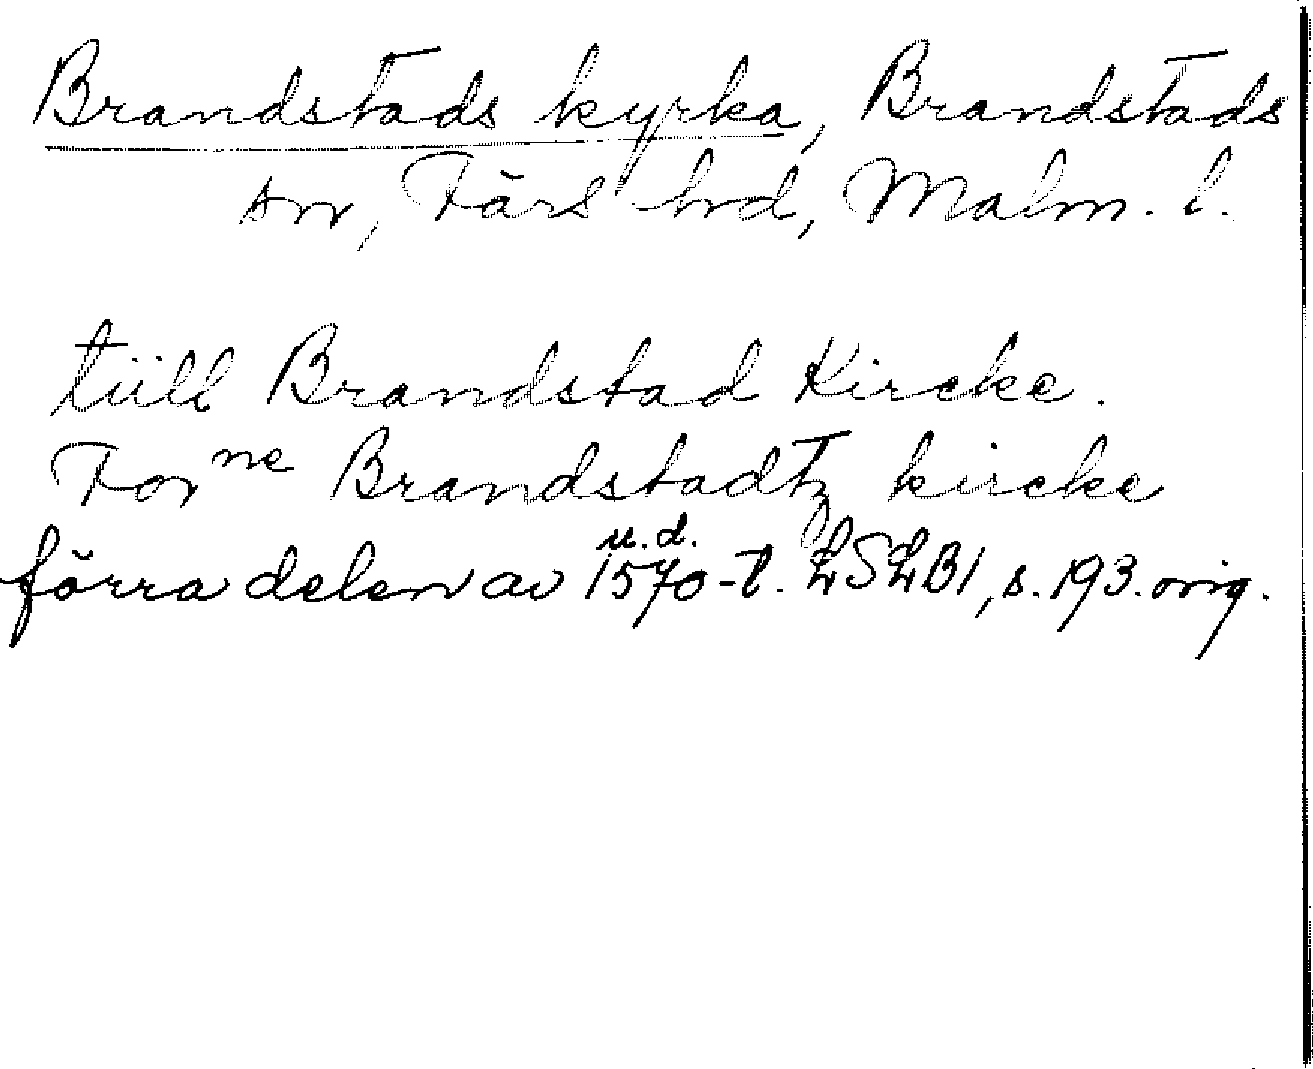 Brandstads kyrka, Brandstads
sn, Färs hd, Malm. l.
tüll Brandstad Kircke.
For ne Brandstadtz kircke
u.d.
förra delen av 1570-t. LSLB1, s. 193. orig.